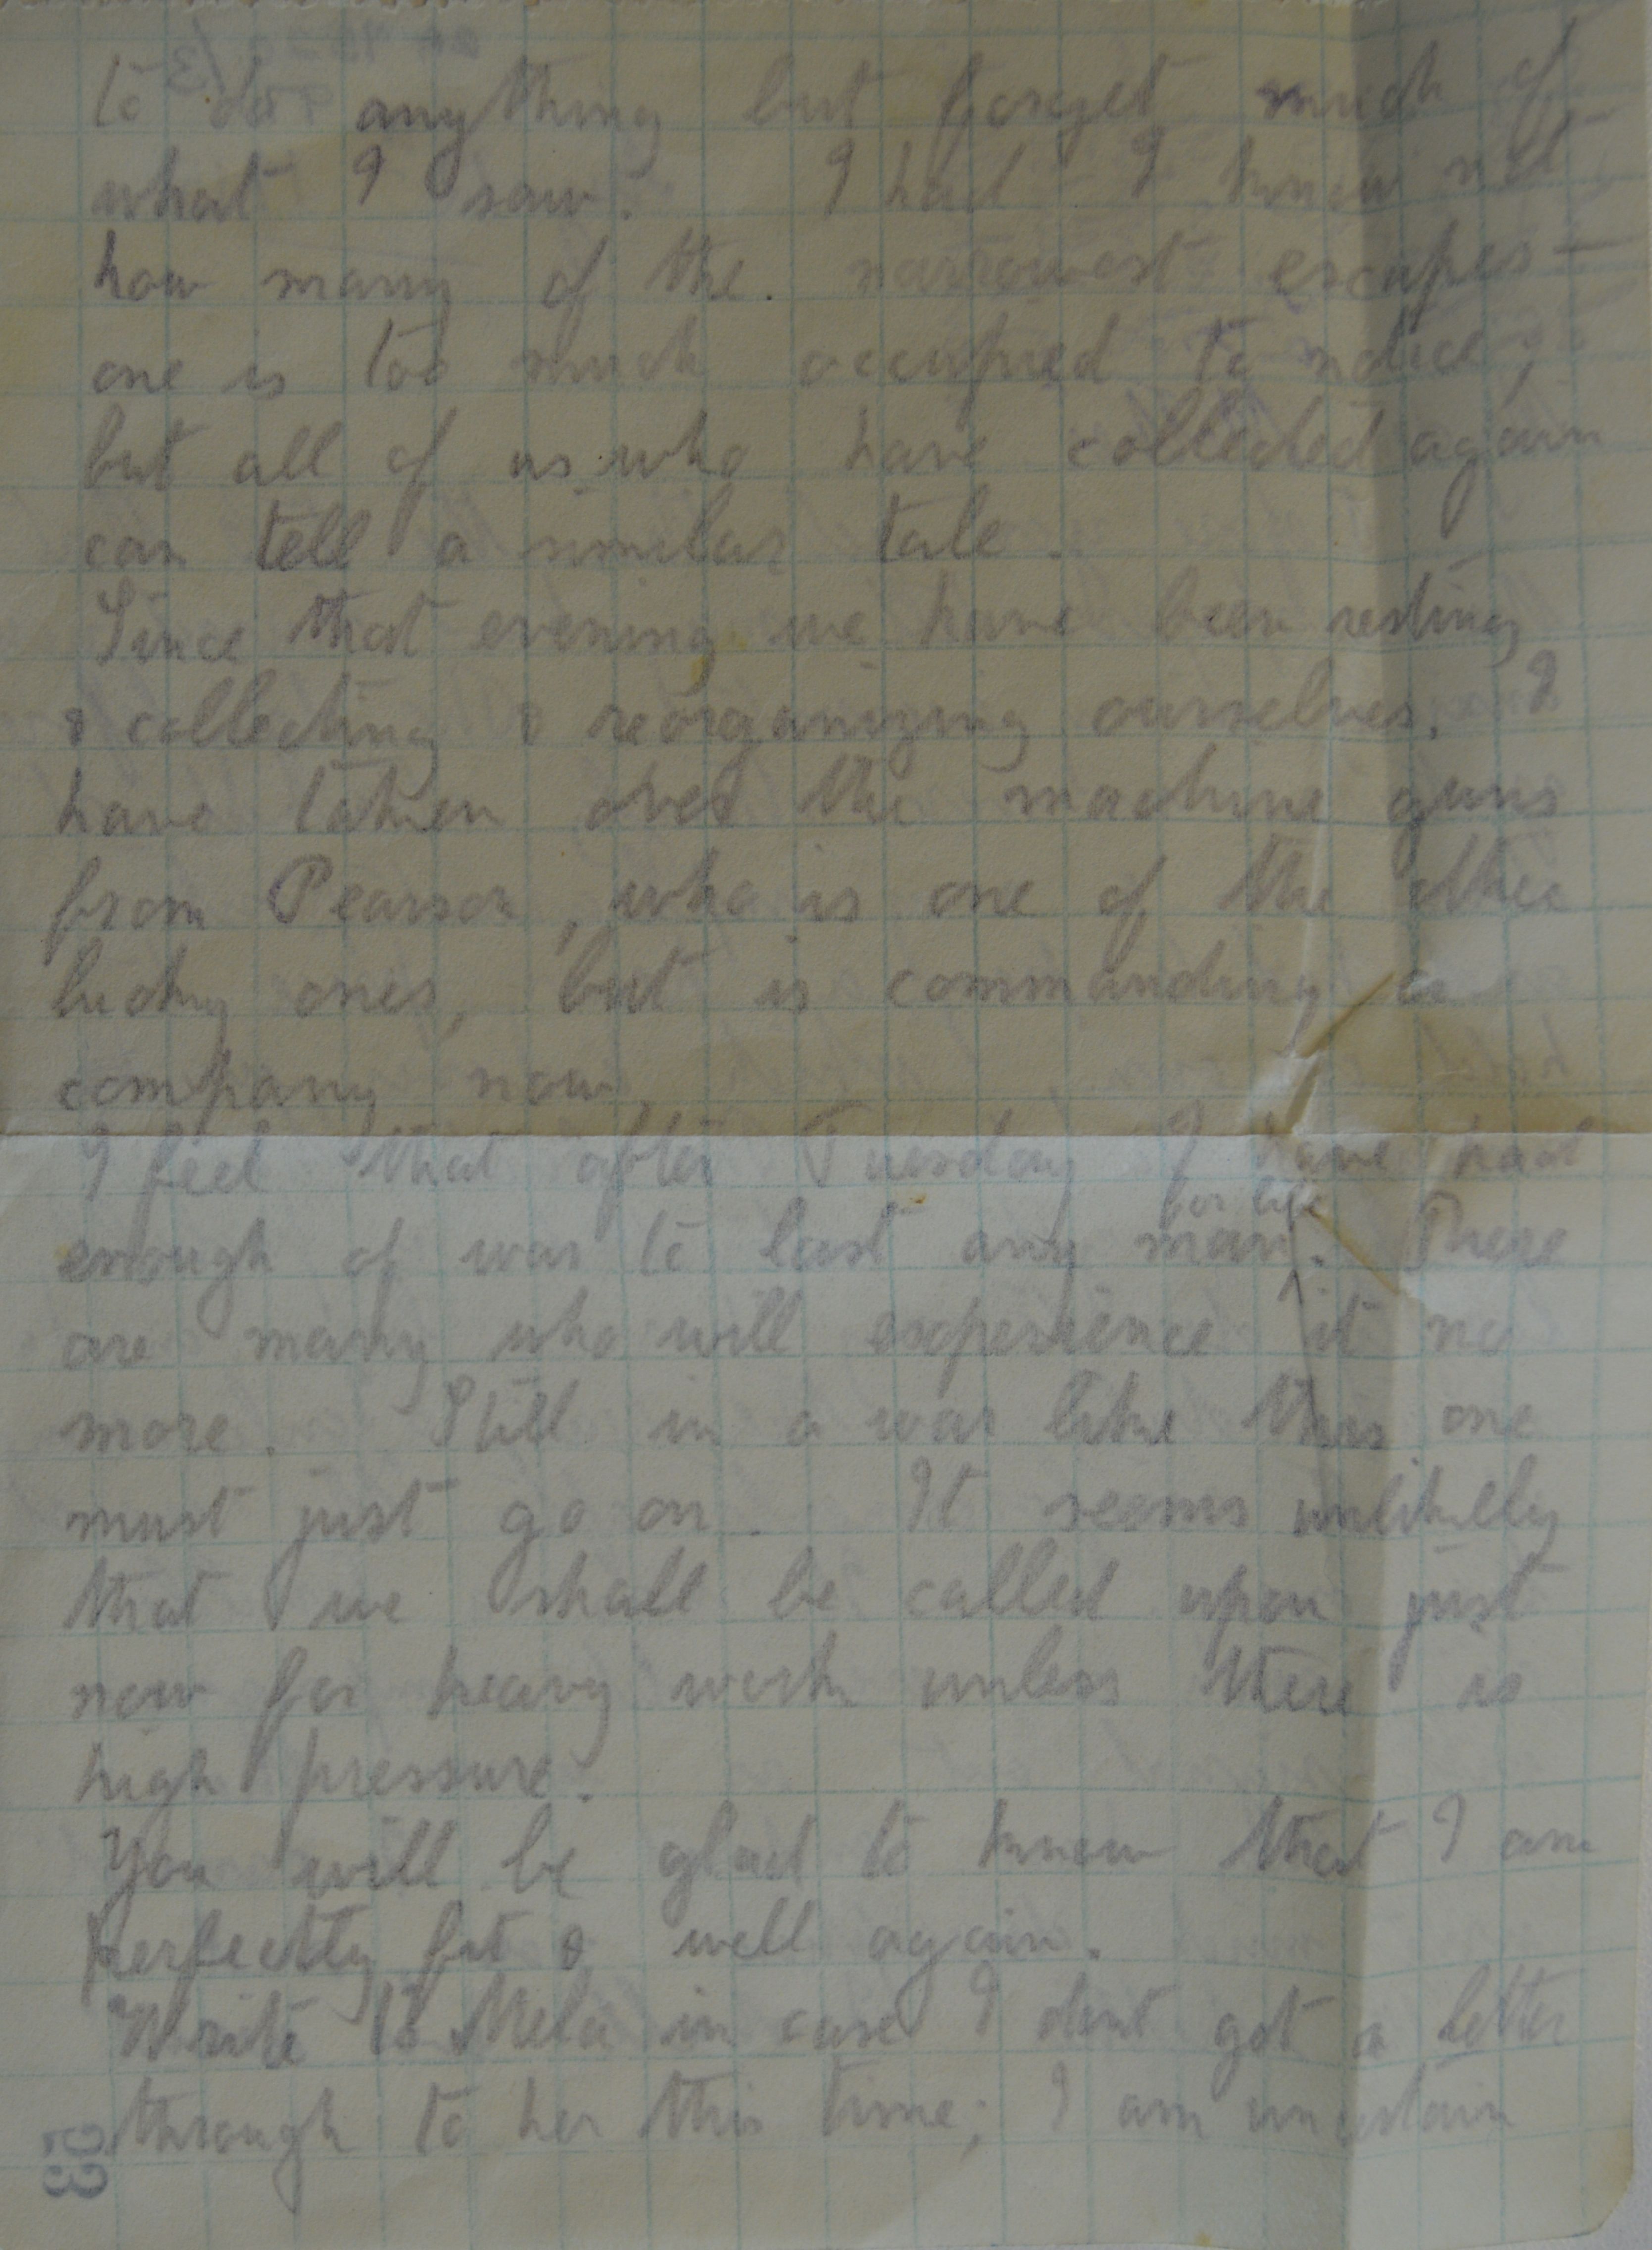 to do anything but forget much of
what I saw. I had - I know not
how many of the narrowest escapes -
one is too much occupied to notice;
but all of us who have collected again
can tell a similar tale.
Since that evening we have been resting
& collecting & reorganizing ourselves. I
have taken over the machine guns
from Pearson, who is one of the other
lucky ones, but is commanding a
company now.
I feel that after Tuesday I have had
for life
enough of war to last any man. There
are many who will experience it no
more. Still in a war like this one
must just go on. It seems unlikely
that we shall be called upon just
now for heavy work unless there is
high pressure.
You will be glad to know that I am
perfectly fit & well again.
Write to Mela in case I dont get a letter
through to her this time; I am uncertain